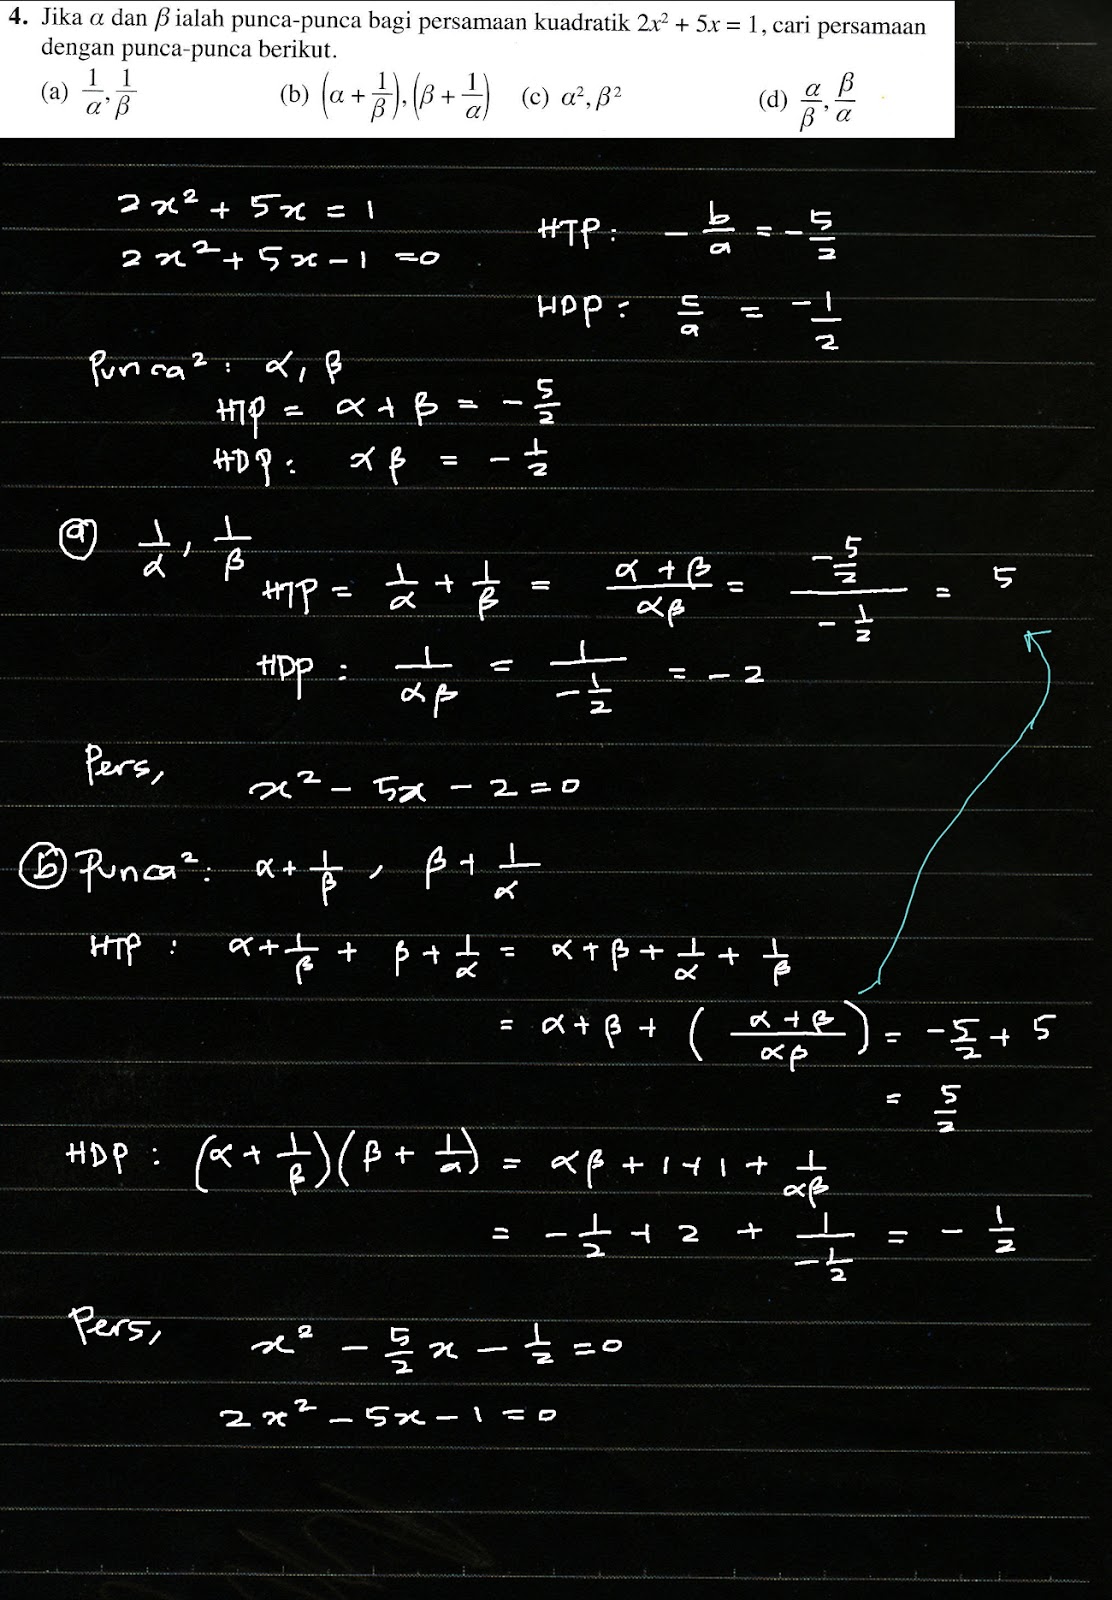 4. Jika α dan β ialah punca-punca bagi persamaan kuadratik 2x² + 5x = 1, cari persamaan
dengan punca-punca berikut.
(a) 1/α, 1/β (b) (α + 1/β), (β + 1/α) (c) α², β² (d) α/β, β/α
2x² + 5x = 1
HTP: - b/a = - 5/2
2x² + 5x - 1 = 0
HDP: c/a = -1/2
Punca²: α, β
HTP = α + β = - 5/2
HDP: αβ = - 1/2
(a) 1/α, 1/β
HTP = 1/α + 1/β = (α + β)/(αβ) = (-5/2)/(-1/2) = 5
HDP: 1/(αβ) = 1/(-1/2) = -2
Pers, x² - 5x - 2 = 0
(b) Punca²: α + 1/β, β + 1/α
HTP: α + 1/β + β + 1/α = α + β + 1/α + 1/β
= α + β + ((α + β)/(αβ)) = -5/2 + 5
= 5/2
HDP: (α + 1/β)(β + 1/α) = αβ + 1 + 1 + 1/(αβ)
= -1/2 + 2 + 1/(-1/2) = - 1/2
Pers, x² - 5/2 x - 1/2 = 0
2x² - 5x - 1 = 0